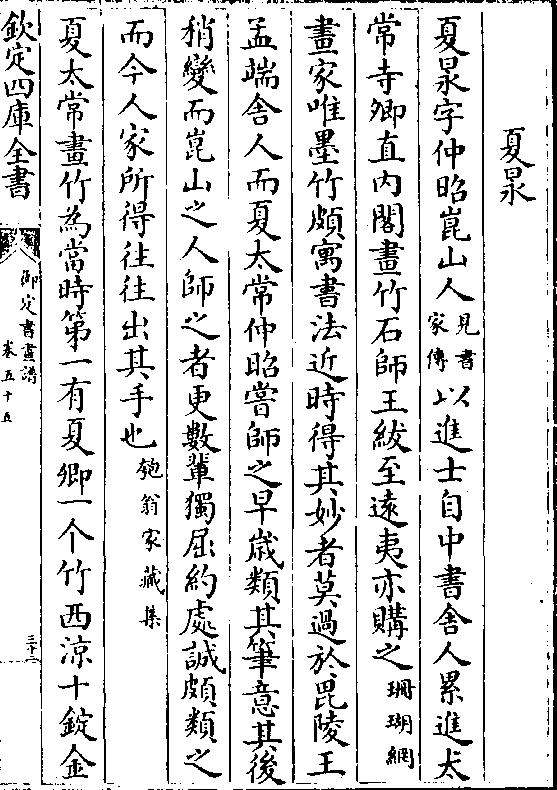 夏㫤
夏㫤字仲昭崑山人見書家傳以進士自中書舍人累進太
常寺卿直内閣畫竹石師王紱至遠夷亦購之珊瑚網
畫家唯墨竹頗寓書法近時得其妙者莫過於毘陵王
孟端舍人而夏太常仲昭嘗師之早歳類其筆意其後
稍變而崑山之人師之者更數輩獨屈約處誠頗類之
而今人家所得往往出其手也匏翁家藏集
夏太常畫竹為當時第一有夏卿一个竹西涼十錠金
欽定四庫全書
御定書畫譜
卷五十五